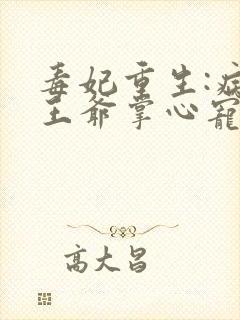 毒妃重生:病
王爷掌心宠
高大昌